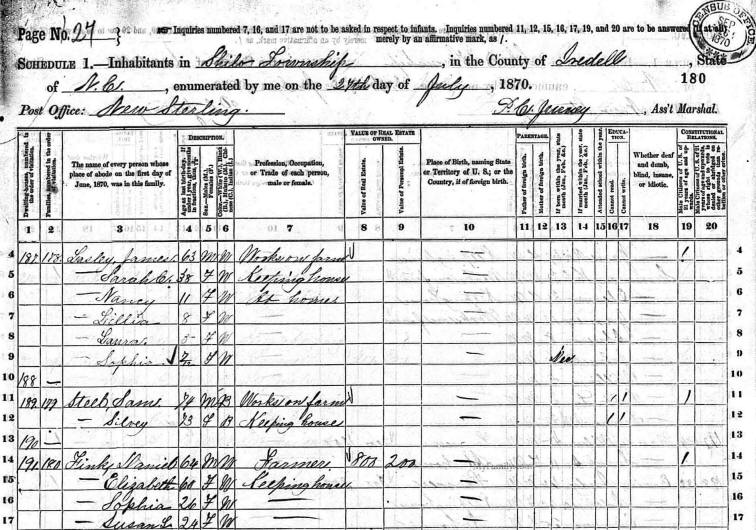 Page No. 27
Inquiries numbered 7, 16, and 17 are not to be asked in respect to infants. Inquiries numbered 11, 12, 15, 16, 17, 19, and 20 are to be answered if at all
merely by an affirmative mark, as /.
CENSUS OFFICE
SEP
1870
SCHEDULE 1.—Inhabitants in Shilo Township, in the County of Iredell, State
of N.C., enumerated by me on the 27th day of July, 1870.
180
Post Office: New Sterling.
Ass't Marshal.
Dwelling-houses, numbered in the order of visitation.
Families, numbered in the order of visitation.
The name of every person whose place of abode on the first day of June, 1870, was in this family.
DESCRIPTION.
Profession, Occupation, or Trade of each person, male or female.
VALUE OF REAL ESTATE OWNED.
Value of Real Estate.
Value of Personal Estate.
Place of Birth, naming State or Territory of U. S.; or the Country, if of foreign birth.
PARENTAGE.
Father of foreign birth.
Mother of foreign birth.
If born within the year, state month (Jan., Feb., &c.)
If married within the year, state month (Jan., Feb., &c.)
Attended school within the year.
EDUCATION.
Cannot read.
Cannot write.
Whether deaf and dumb, blind, insane, or idiotic.
CONSTITUTIONAL RELATIONS.
1 2 3 4 5 6 7 8 9 10 11 12 13 14 15 16 17 18 19 20
4 187 178 Lasley, James 63 M W Works on farm — / 4
5 — Sarah C. 38 F W Keeping house — 5
6 — Nancy 11 F W At home — 6
7 — Lillia 8 F W — 7
8 — Laura 5 F W — 8
9 — Sophia F W — 9
10 188 — 10
11 189 179 Steel, Sam 74 M B Works on farm — / / / 11
12 — Silvey 73 F B Keeping house — / / 12
13 190 — 13
14 191 180 Fink, Daniel 64 M W Farmer 800 200 — / 14
15 — Elizabeth 60 F W Keeping house — 15
16 — Sophia 26 F W — 16
17 — Susan L. 24 F W — 17